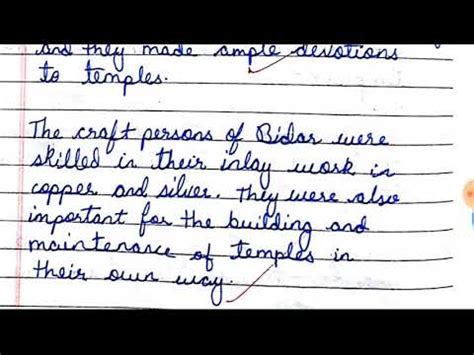 and they made ample devotions
to temples.
The craft persons of Bidar were
skilled in their inlay work in
copper and silver. They were also
important for the building and
maintenance of temples in
their own way.